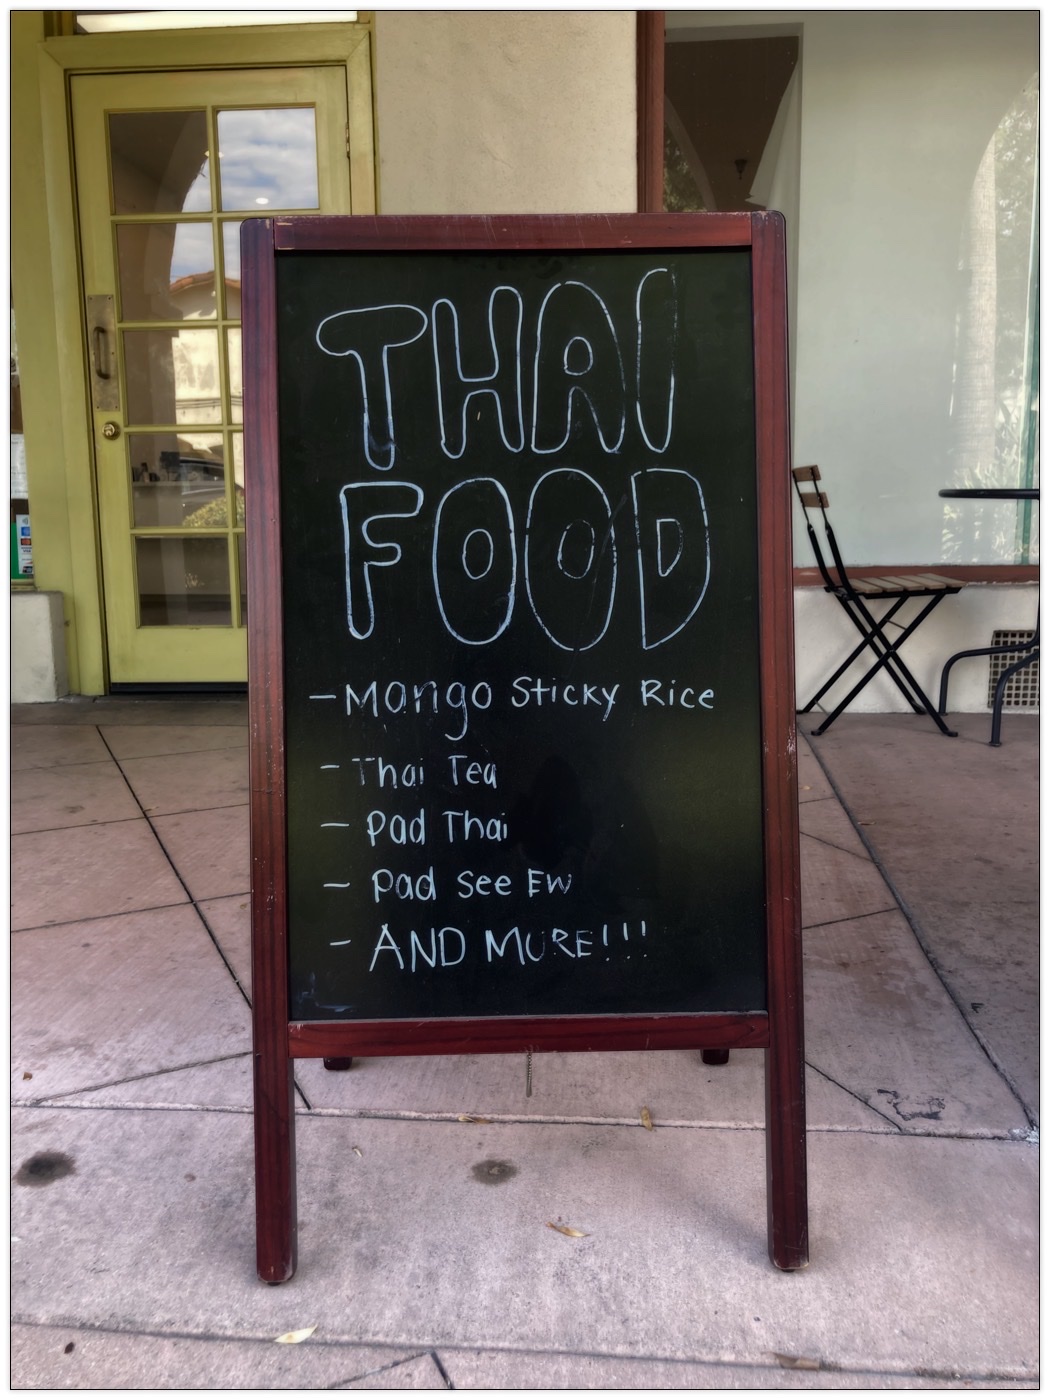 THAI
FOOD
- Mango Sticky Rice
- Thai Tea
- Pad Thai
- Pad See Ew
- AND MORE!!!